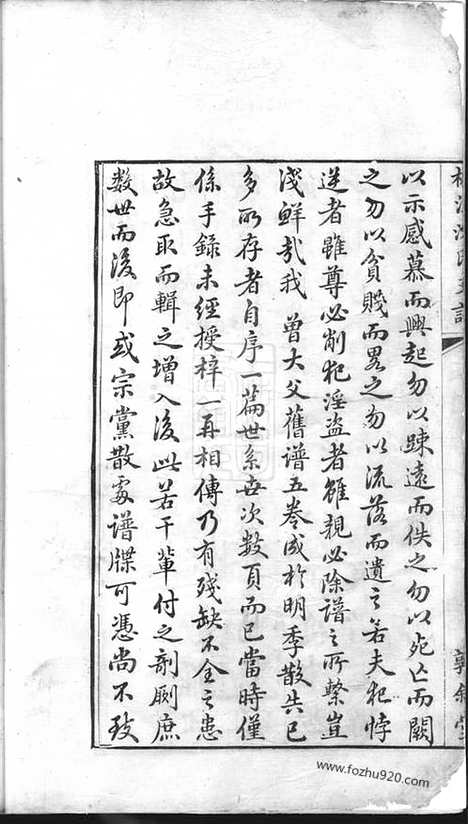 以示感慕而興起勿以踈遠而佚之勿以死亡而闕
之勿以貧賤而畧之勿以流落而遺之若夫犯悖
逆者雖尊必削犯淫盜者雖親必除譜之所繫豈
淺鮮哉我 曾大父舊譜五卷成於明季散失已
多所存者自序一篇世系世次數頁而已當時僅
係手錄未經授梓一再相傳乃有殘缺不全之患
故急取而輯之增入後此若干輩付之剞劂庶
数世而後即或宗黨散處譜牒可憑尚不致
www.fozhu920.com